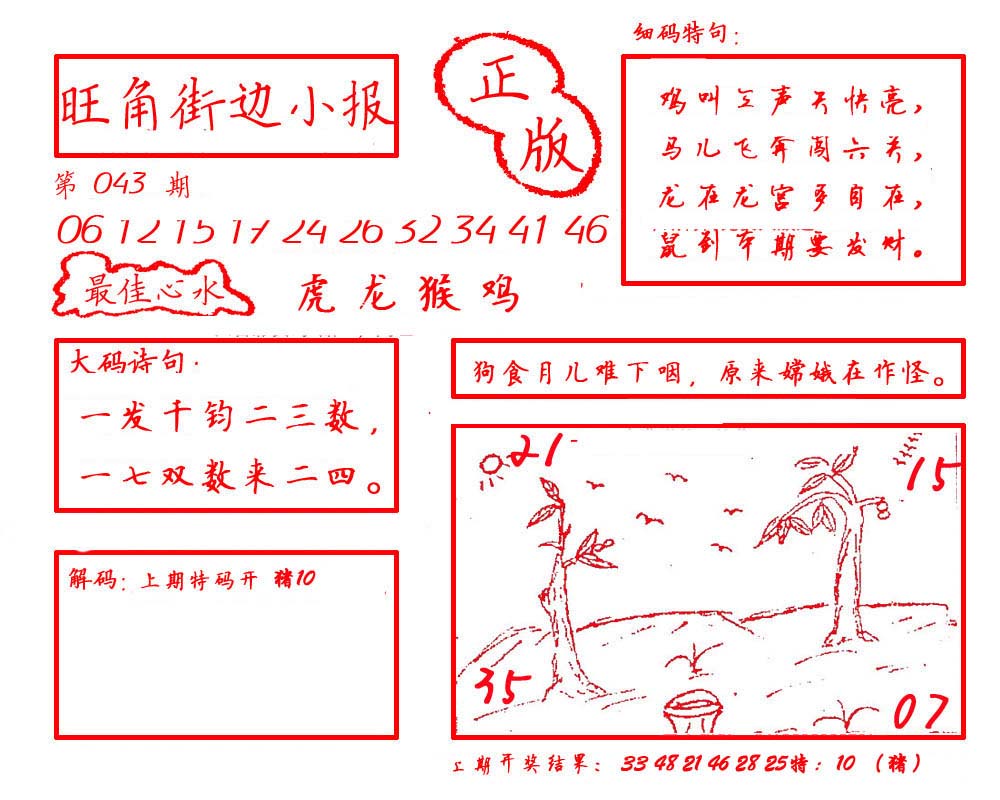 旺角街边小报
正
版
第 043 期
06 12 15 17 24 26 32 34 41 46
最佳心水
虎 龙 猴 鸡
细码特句：
鸡叫三声天快亮，
马儿飞奔闯六关，
龙在龙宫多自在，
鼠到本期要发财。
大码诗句·
一发千钧二三数，
一七双数来二四。
狗食月儿难下咽，原来嫦娥在作怪。
21
15
35
07
解码：上期特码开 猪10
上期开奖结果：33 48 21 46 28 25特：10 （猪）